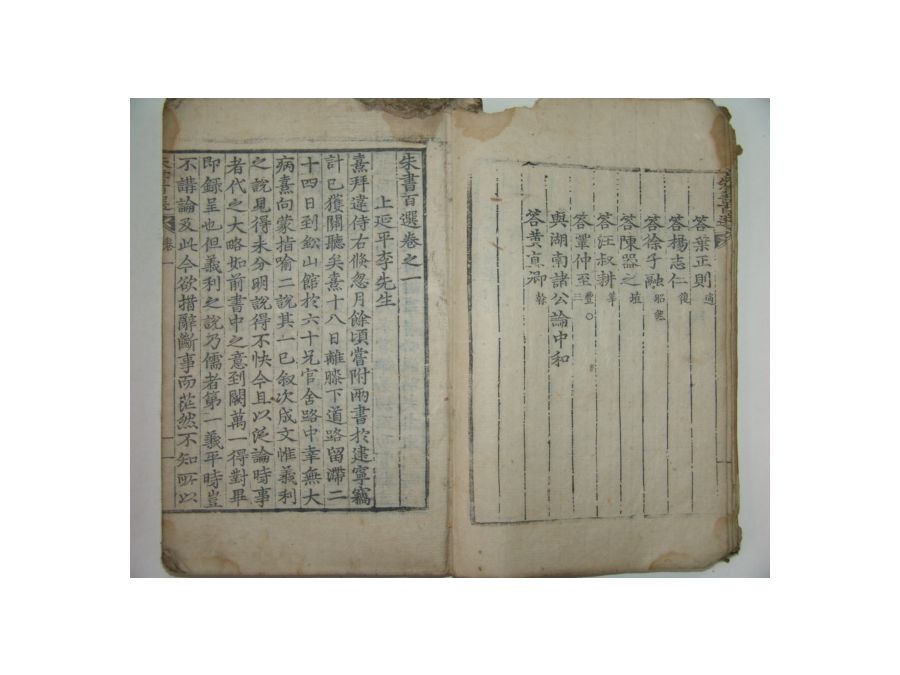 答葉正則 適
答楊志仁 復
答徐子融 昭然
答陳器之 埴
答汪叔耕 莘
答鞏仲至 豐 三
與湖南諸公論中和
答黃直卿 榦
朱書百選卷之一
上延平李先生
熹拜違侍右倏忽月餘頃嘗附兩書於建寧竊
計已獲關聽矣熹十八日離膝下道路留滯二
十四日到鈆山館於六十兄官舍路中幸無大
病熹向蒙指喻二說其一已叙次成文惟義利
之說見得未分明說得不快今且以泛論時事
者代之大略如前書中之意到闕萬一得對畢
即錄呈也但義利之說乃儒者第一義平時豈
不講論及此今欲措辭斷事而茫然不知所以